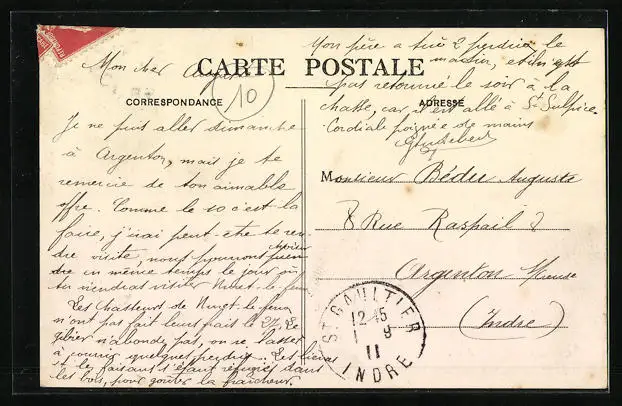 Mon cher Auguste
CARTE POSTALE
CORRESPONDANCE
ADRESSE
10
Je ne puis aller dimanche
à Argenton, mais je te
remercie de ton aimable
offre. Comme le 10 c'est la
foire, j'irai peut-être te ren-
dre visite, nous pourrons
en même temps le jour où
tu viendras visiter
Les chasseurs de
n'ont pas fait leurs frais le 27. Le
gibier n'abonde pas, on se lasse
à courir quelques perdrix. Les lièvres
et les faisans s'étant réfugiés dans
les bois, pour goûter la fraîcheur.
Mon père a tué 2 perdrix le
matin, et il n'est
pas retourné le soir à la
chasse, car il est allé à St Sulpice.
Cordiale poignée de mains
Monsieur Bédu Auguste
8 Rue Raspail 8
Argenton s/Creuse
(Indre)
ST GAULTIER
12-45
1 - 9
11
INDRE